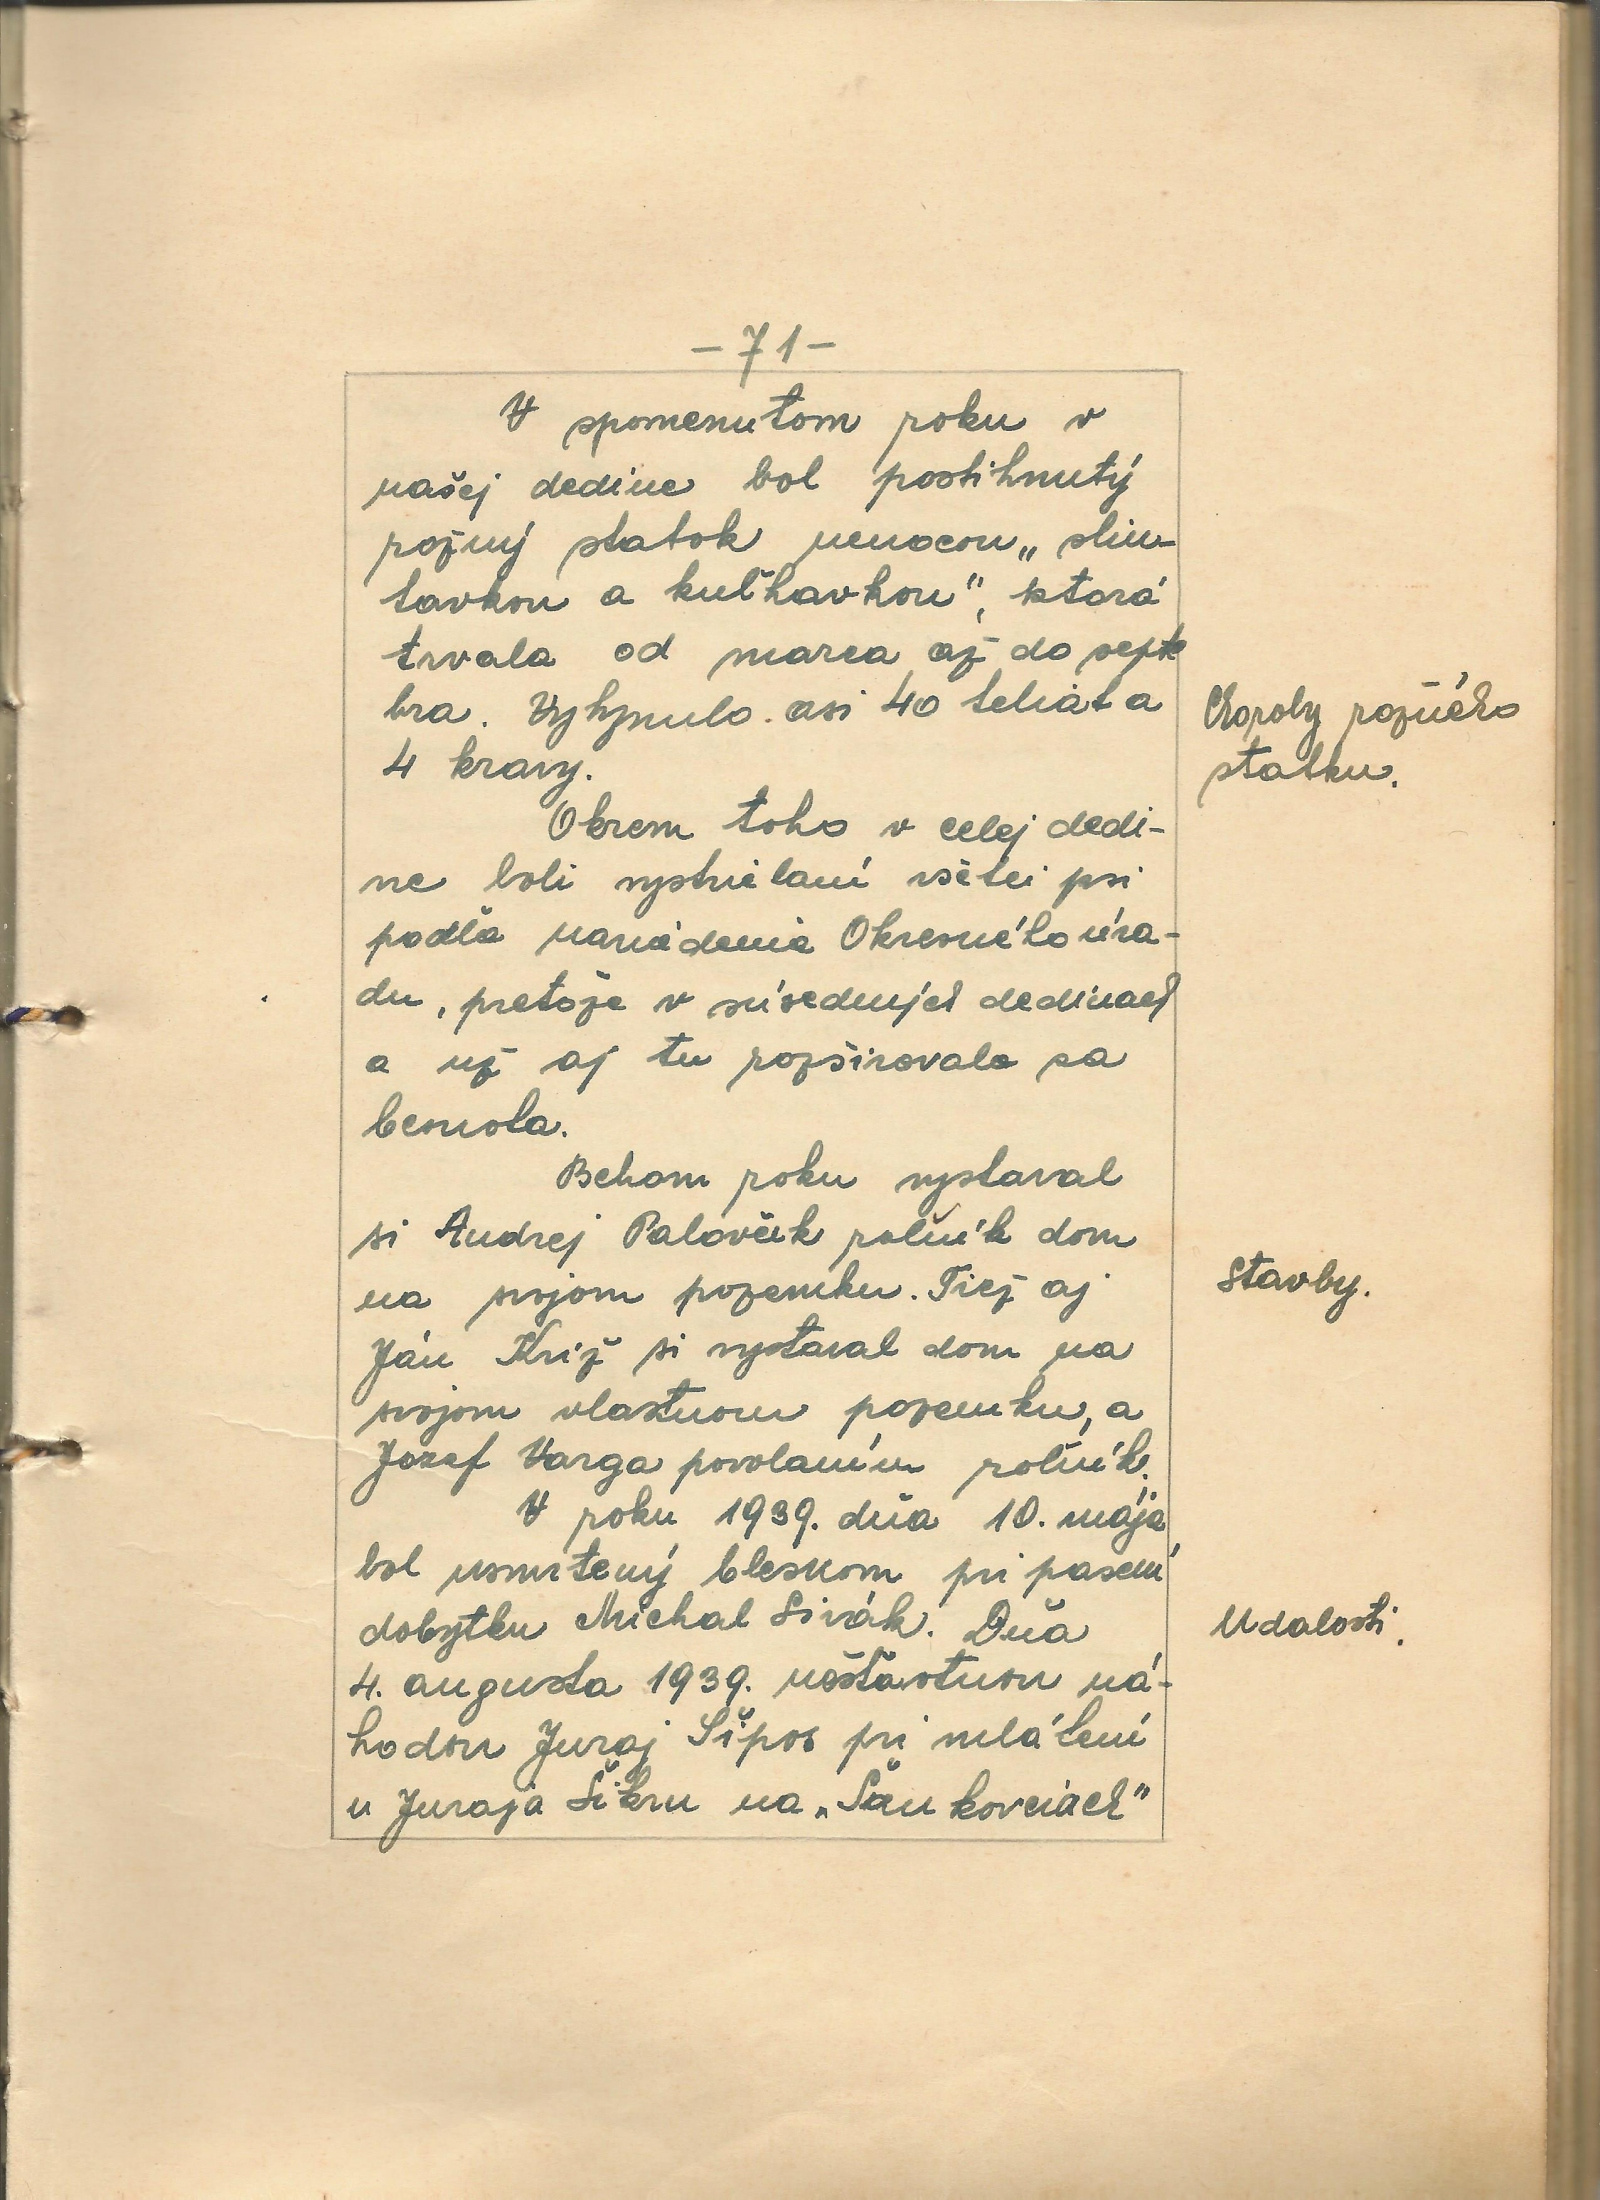 - 71 -
V spomenutom roku v
našej dedine bol postihnutý
rožný statok nemocou „slin-
tavkou a kulhavkou", ktorá
trvala od marca až do septe
bra. Vyhynulo asi 40 teliat a
4 kravy.
Choroby rožného
statku.
Okrem toho v celej dedi-
ne boli vystrielaní všetci psi
podľa nariadenia Okresného úra-
du, pretože v súsedných dedinach
a už aj tu rozširovala sa
besnota.
Behom roku vystaval
si Andrej Palovčík roľník dom
na svojom pozemku. Tiež aj
Stavby.
Ján Kríž si vystaval dom na
svojom vlastnom pozemku, a
Jozef Varga povolaním roľník.
V roku 1939. dňa 10. mája
bol usmrtený bleskom pri pasení
dobytku Michal Sivák. Dňa
Udalosti.
4. augusta 1939. nešťastnou ná-
hodou Juraj Šipos pri mlátení
u Juraja Šikru na „Sänkovciach"